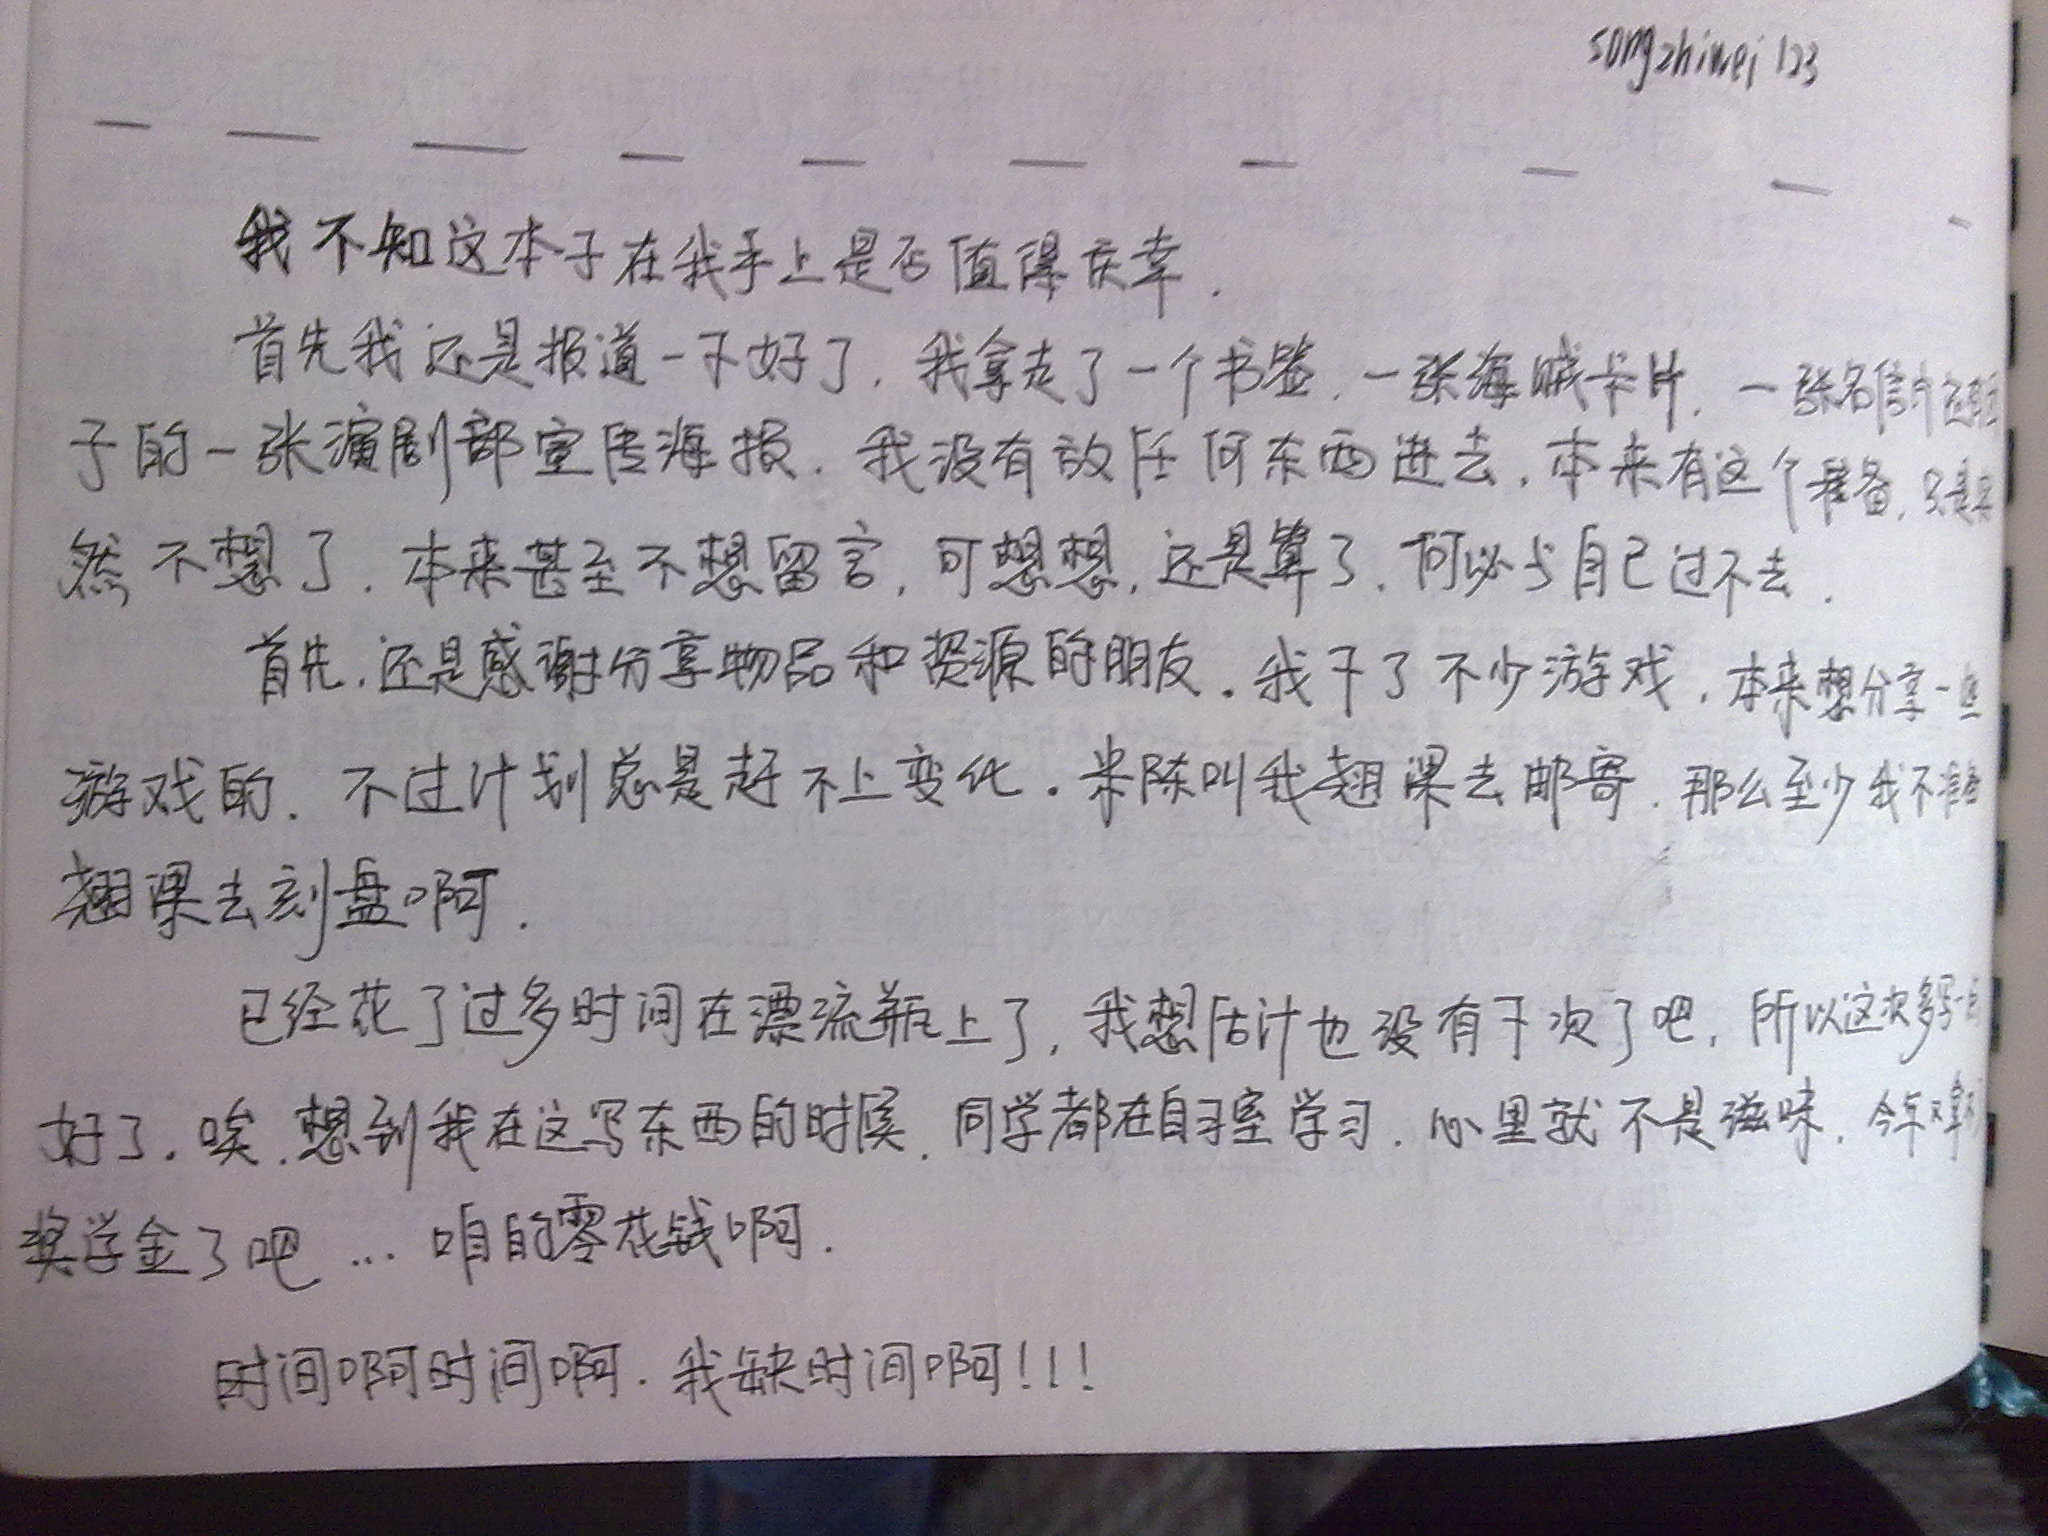 songzhiwei 123
我不知这本子在我手上是否值得庆幸.
首先我还是报道一下好了,我拿走了一个书签,一张海贼卡片,一张名信片还有
子的一张演剧部宣传海报.我没有放任何东西进去,本来有这个准备,只是
然不想了,本来甚至不想留言,可想想,还是算了,何必与自己过不去.
首先,还是感谢分享物品和资源的朋友。我下了不少游戏,本来想分享一些
游戏的.不过计划总是赶不上变化。米陈叫我翘课去邮寄,那么至少我不准备
翘课去刻盘啊.
已经花了过多时间在漂流瓶上了,我想估计也没有下次了吧,所以这次多写一点
好了。唉,想到我在这写东西的时候,同学都在自习室学习,心里就不是滋味,今年又拿不
奖学金了吧…咱的零花钱啊.
时间啊时间啊.我缺时间啊!!!